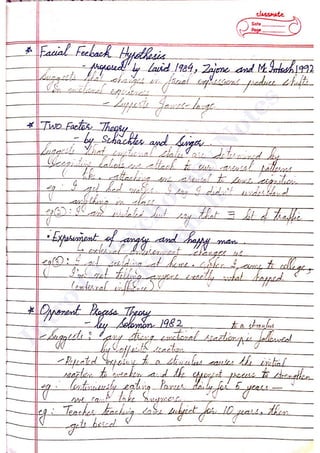 classmate
Date
Page
* Facial Feeback Hypothesis
- proposed by Laird 1984, Zajonc and McIntosh 1992
Suggests that changes in facial expressions produce shifts
in emotional experience
- Supports James-Lange
* TWO Factor Theory
- by Schachter and Singer
Suggests that emotional states are determined by
cognitive labels we attach to our arousal patterns
like, attaching arousal to some cognition
eg: I got bad marks I say I didn't understand
anything in class
eg②: I am late but say that ∃ lot of traffic
• Experiment of angry and happy man.
↳ external environment changes us
eg③: I get scolding at home, when I come to college,
I'm not telling anyone exactly what happened
(external influence)
* Opponent Process Theory
- by Solomon 1982
to a stimulus
- Suggests: any strong emotional reaction is followed
by opposite reaction
- Repeated exposure to a stimulus causes the initial
reaction to weaken and the opponent process to strengthen
eg: Continiously eating Paneer daily for 5 years —
we can't take anymore
eg: Teacher teaching same subject for 10 years, then
gets bored